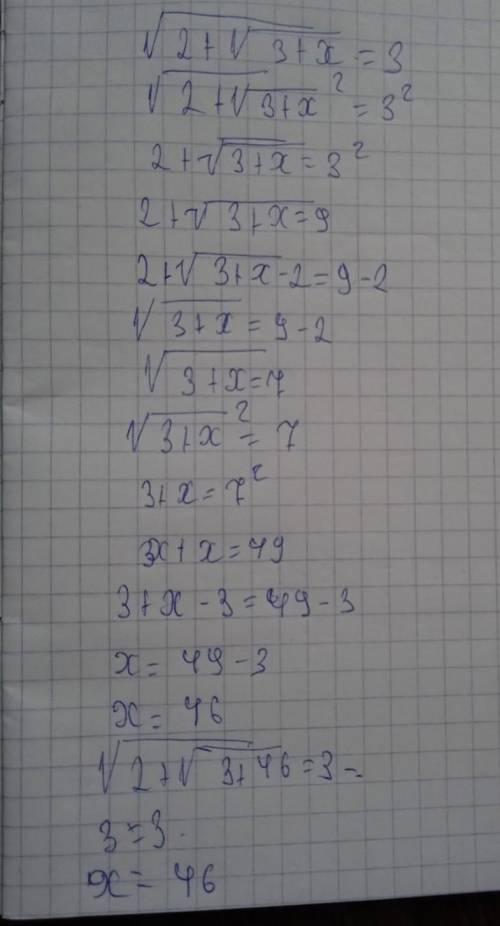 √2+√3+x = 3
√2+√3+x² = 3²
2+√3+x = 3²
2+√3+x = 9
2+√3+x-2=9-2
√3+x = 9-2
√3+x=7
√3+x² = 7
3+x=7²
3x+x=49
3+x-3=49-3
x= 49-3
x= 46
√2+√3+46=3-
3=3.
x= 46